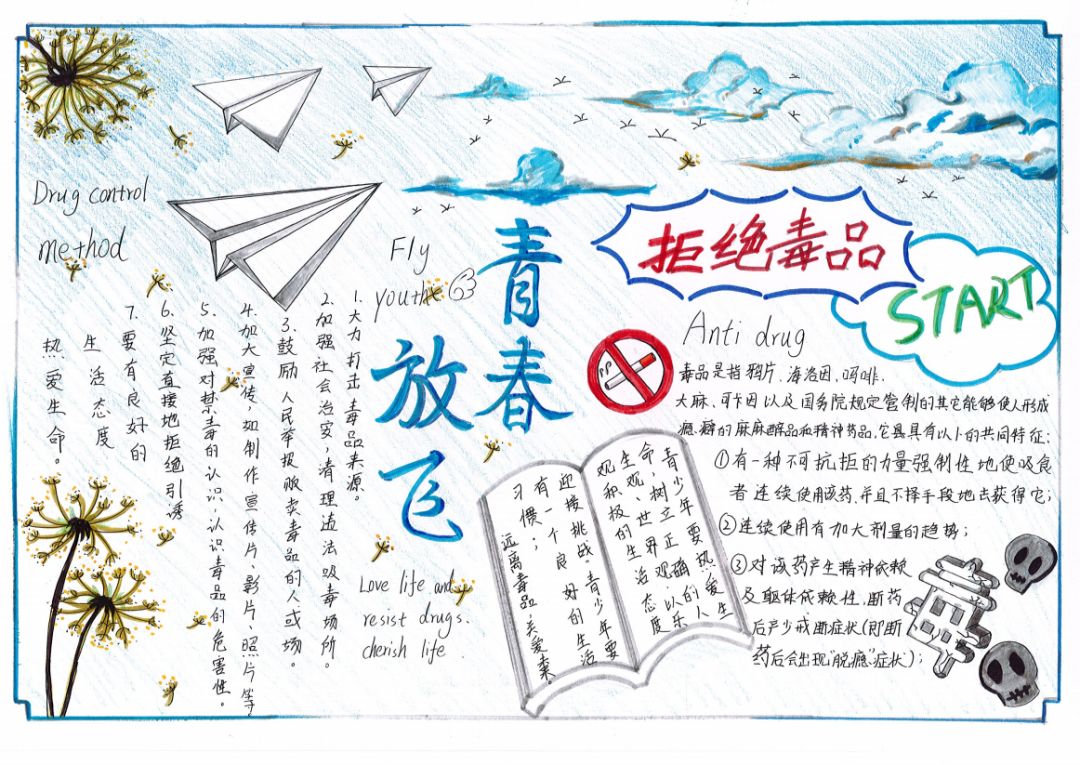 Drug control
method
Fly
youthe
青春
放飞
拒绝毒品
START
Anti drug
毒品是指鸦片、海洛因、吗啡、
大麻、可卡因以及国务院规定管制的其它能够使人形成
瘾癖的麻麻醉品和精神药品,它具具有以下的共同特征:
①有一种不可抗拒的力量强制性地使吸食
者连续使用该药,并且不择手段地去获得它;
②连续使用有加大剂量的趋势;
③对该药产生精神依赖
及躯体依赖性,断药
后产少戒断症状(即断
药后会出现“脱瘾”症状);
1.大力打击毒品来源。
2.加强社会治安,清理违法吸毒场所。
3.鼓励人民举报贩卖毒品的人或场。
4.加大宣传,如制作宣传片、影片、照片等
5.加强对禁毒的认识,认识毒品的危害性。
6.坚定直接地拒绝引诱
7.要有良好的
生活态度
热爱生命。
青少年要热爱生
命,树立正确的人
生观、世界观,以乐
观积极的生活态度
迎接挑战。青少年要
有一个良好的生活
习惯;
远离毒品,关爱未。
Love life and
resist drugs.
cherish life.